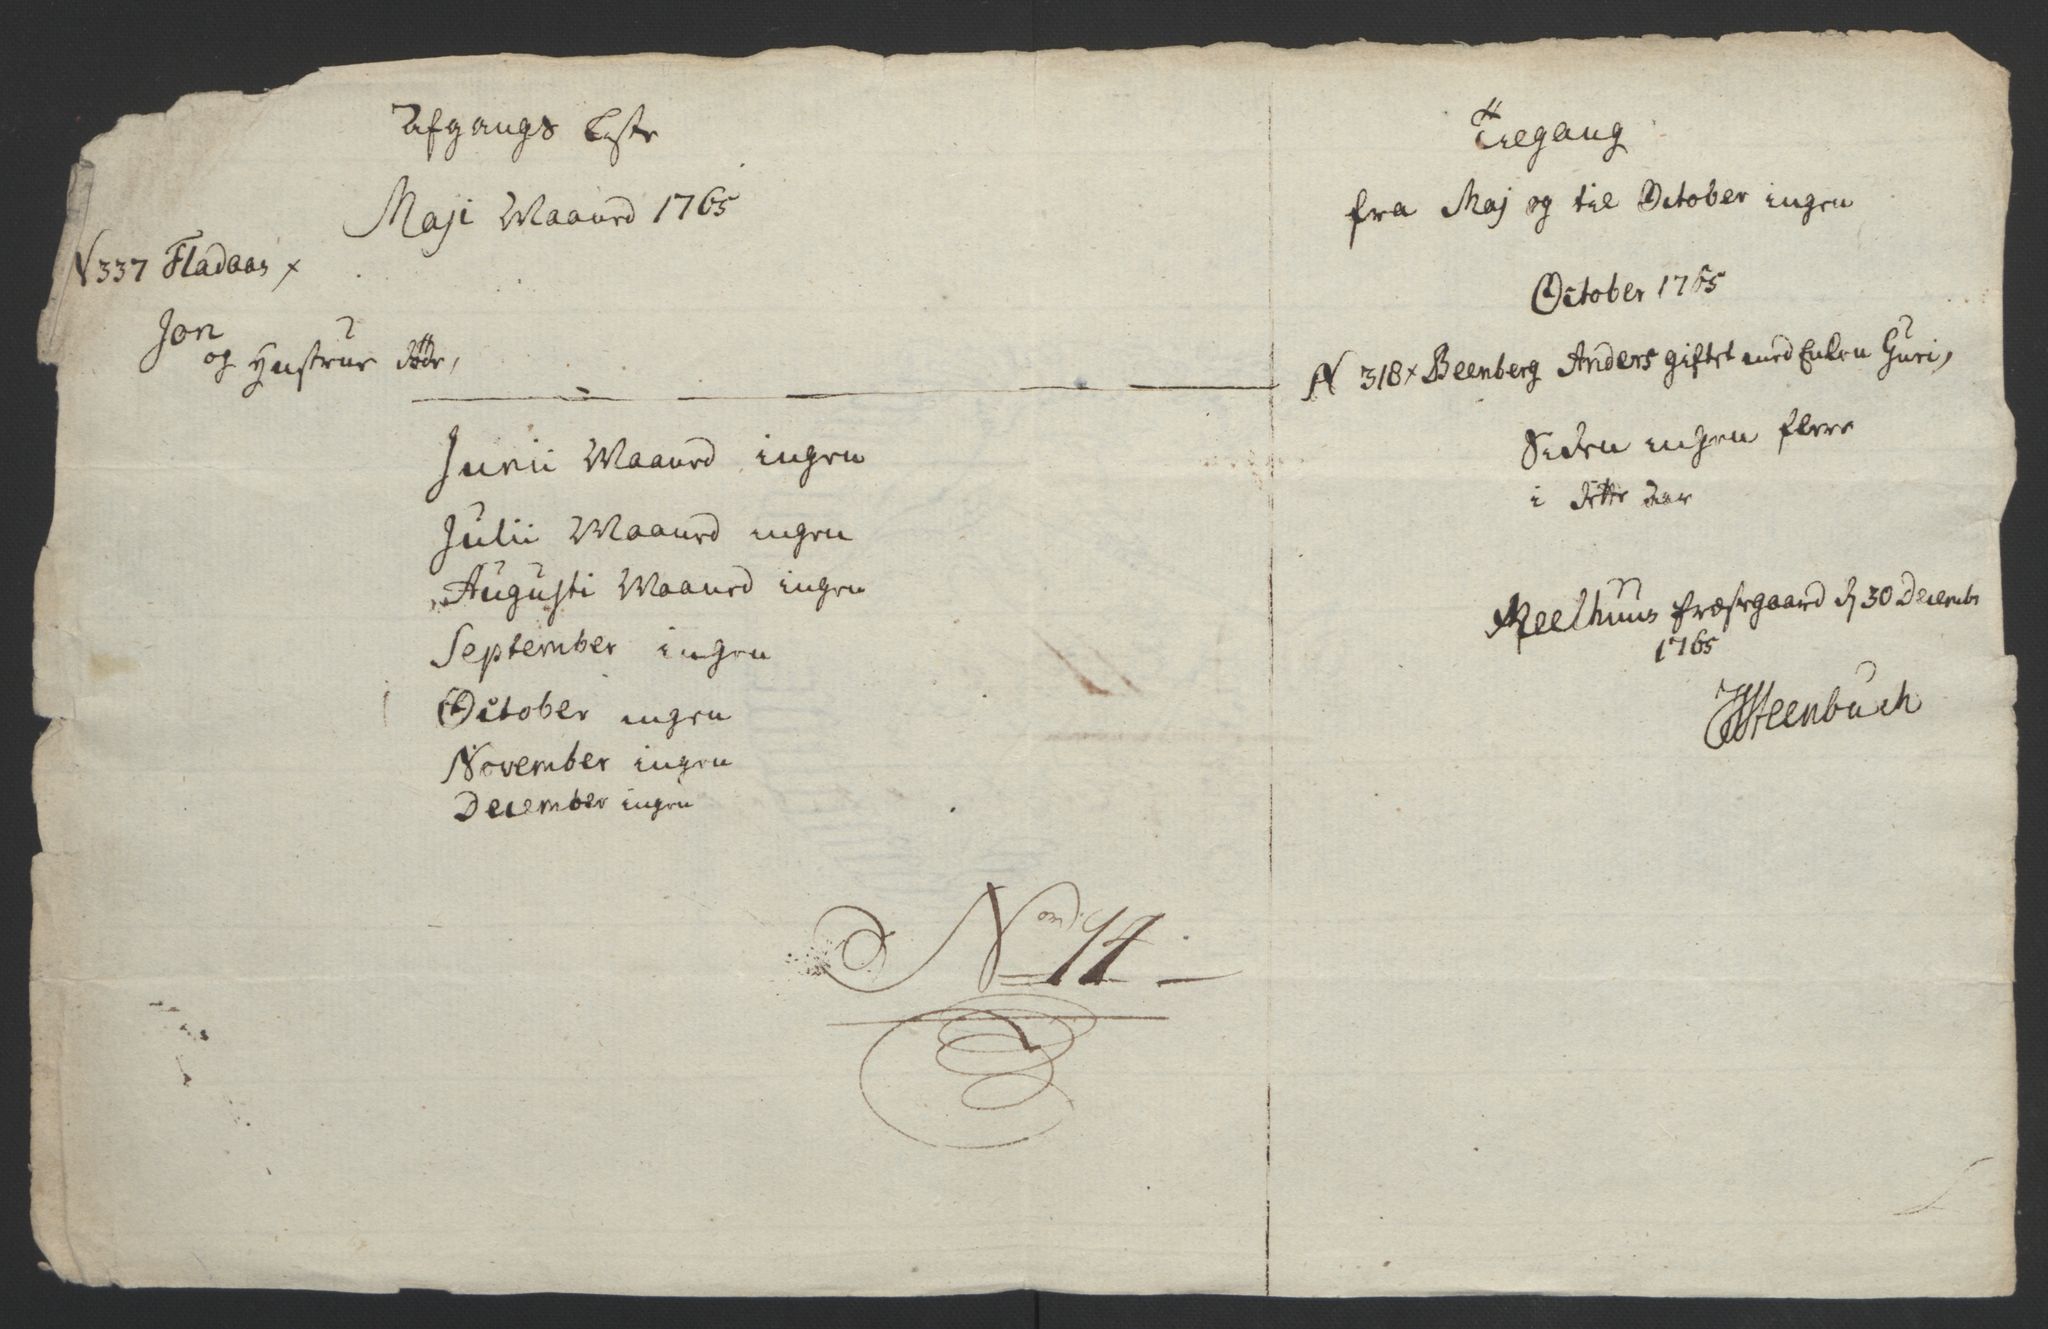 Afgangs Liste
Maji Maaned 1765
N 337 Fladaas x
Jon
og Hustrue døde,
Junii Maaned ingen
Julii Maaned ingen
Augusti Maaned ingen
September ingen
October ingen
November ingen
December ingen
Tilgang
fra Maj og til October ingen
October 1765
N 318 x Beenberg Anders giftet med Enken Guri,
Siden ingen flere
i dette Aar
Meelhuus Præstegaard d 30 Decembr
1765
Steenbuch
No 14